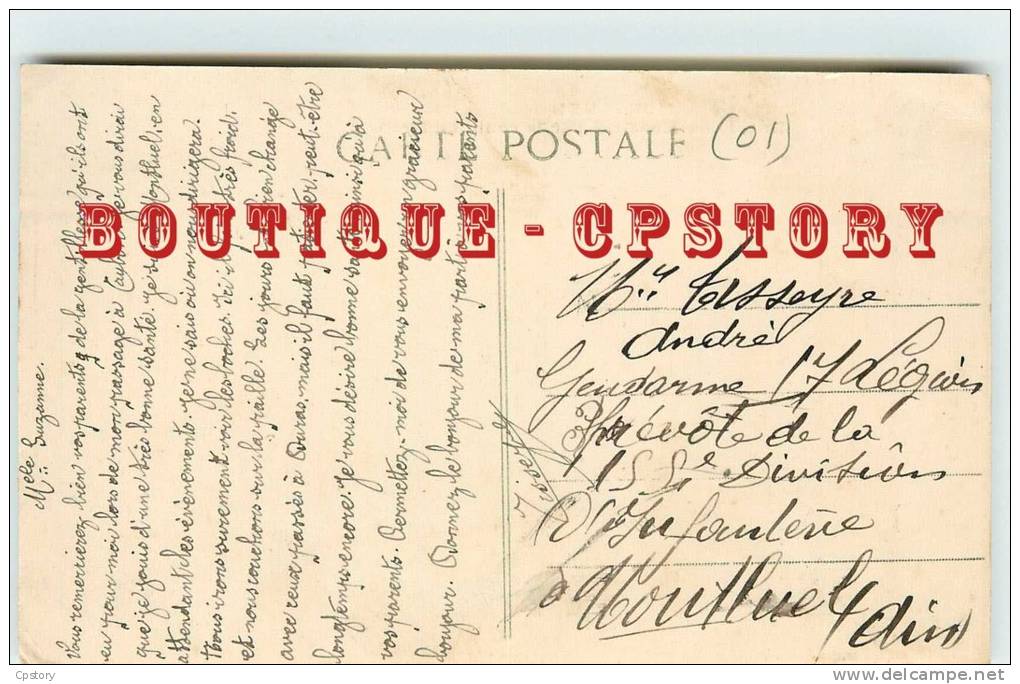 CARTE POSTALE (01)
BOUTIQUE - CPSTORY
Melle Suzanne.
Vous remercierez bien vos parents de la gentillesse qu'ils ont
eu pour moi lors de mon passage à je vous dirai
que je jouis d'une très bonne santé. je suis à Montluel en
attendant les évènements je ne sais où on nous dirigera.
Nous irons surement voir les boches. Ici il fait très froid.
et nous couchons sur la paille. Les jours ont bien changé
avec ceux passés à Duras, mais il faut patienter, peut-être
longtemps encore. Je vous désire bonne santé ainsi qu'à
vos parents. Permettez-moi de vous envoyer un gracieux
bonjour. Donnez le bonjour de ma part à vos parents
Tasseyre
André
Gendarme 17 Légion
Prévôté de la
155e Division
D'Infanterie
à Montluel
Ain
Cpstory
www.delcampe.net